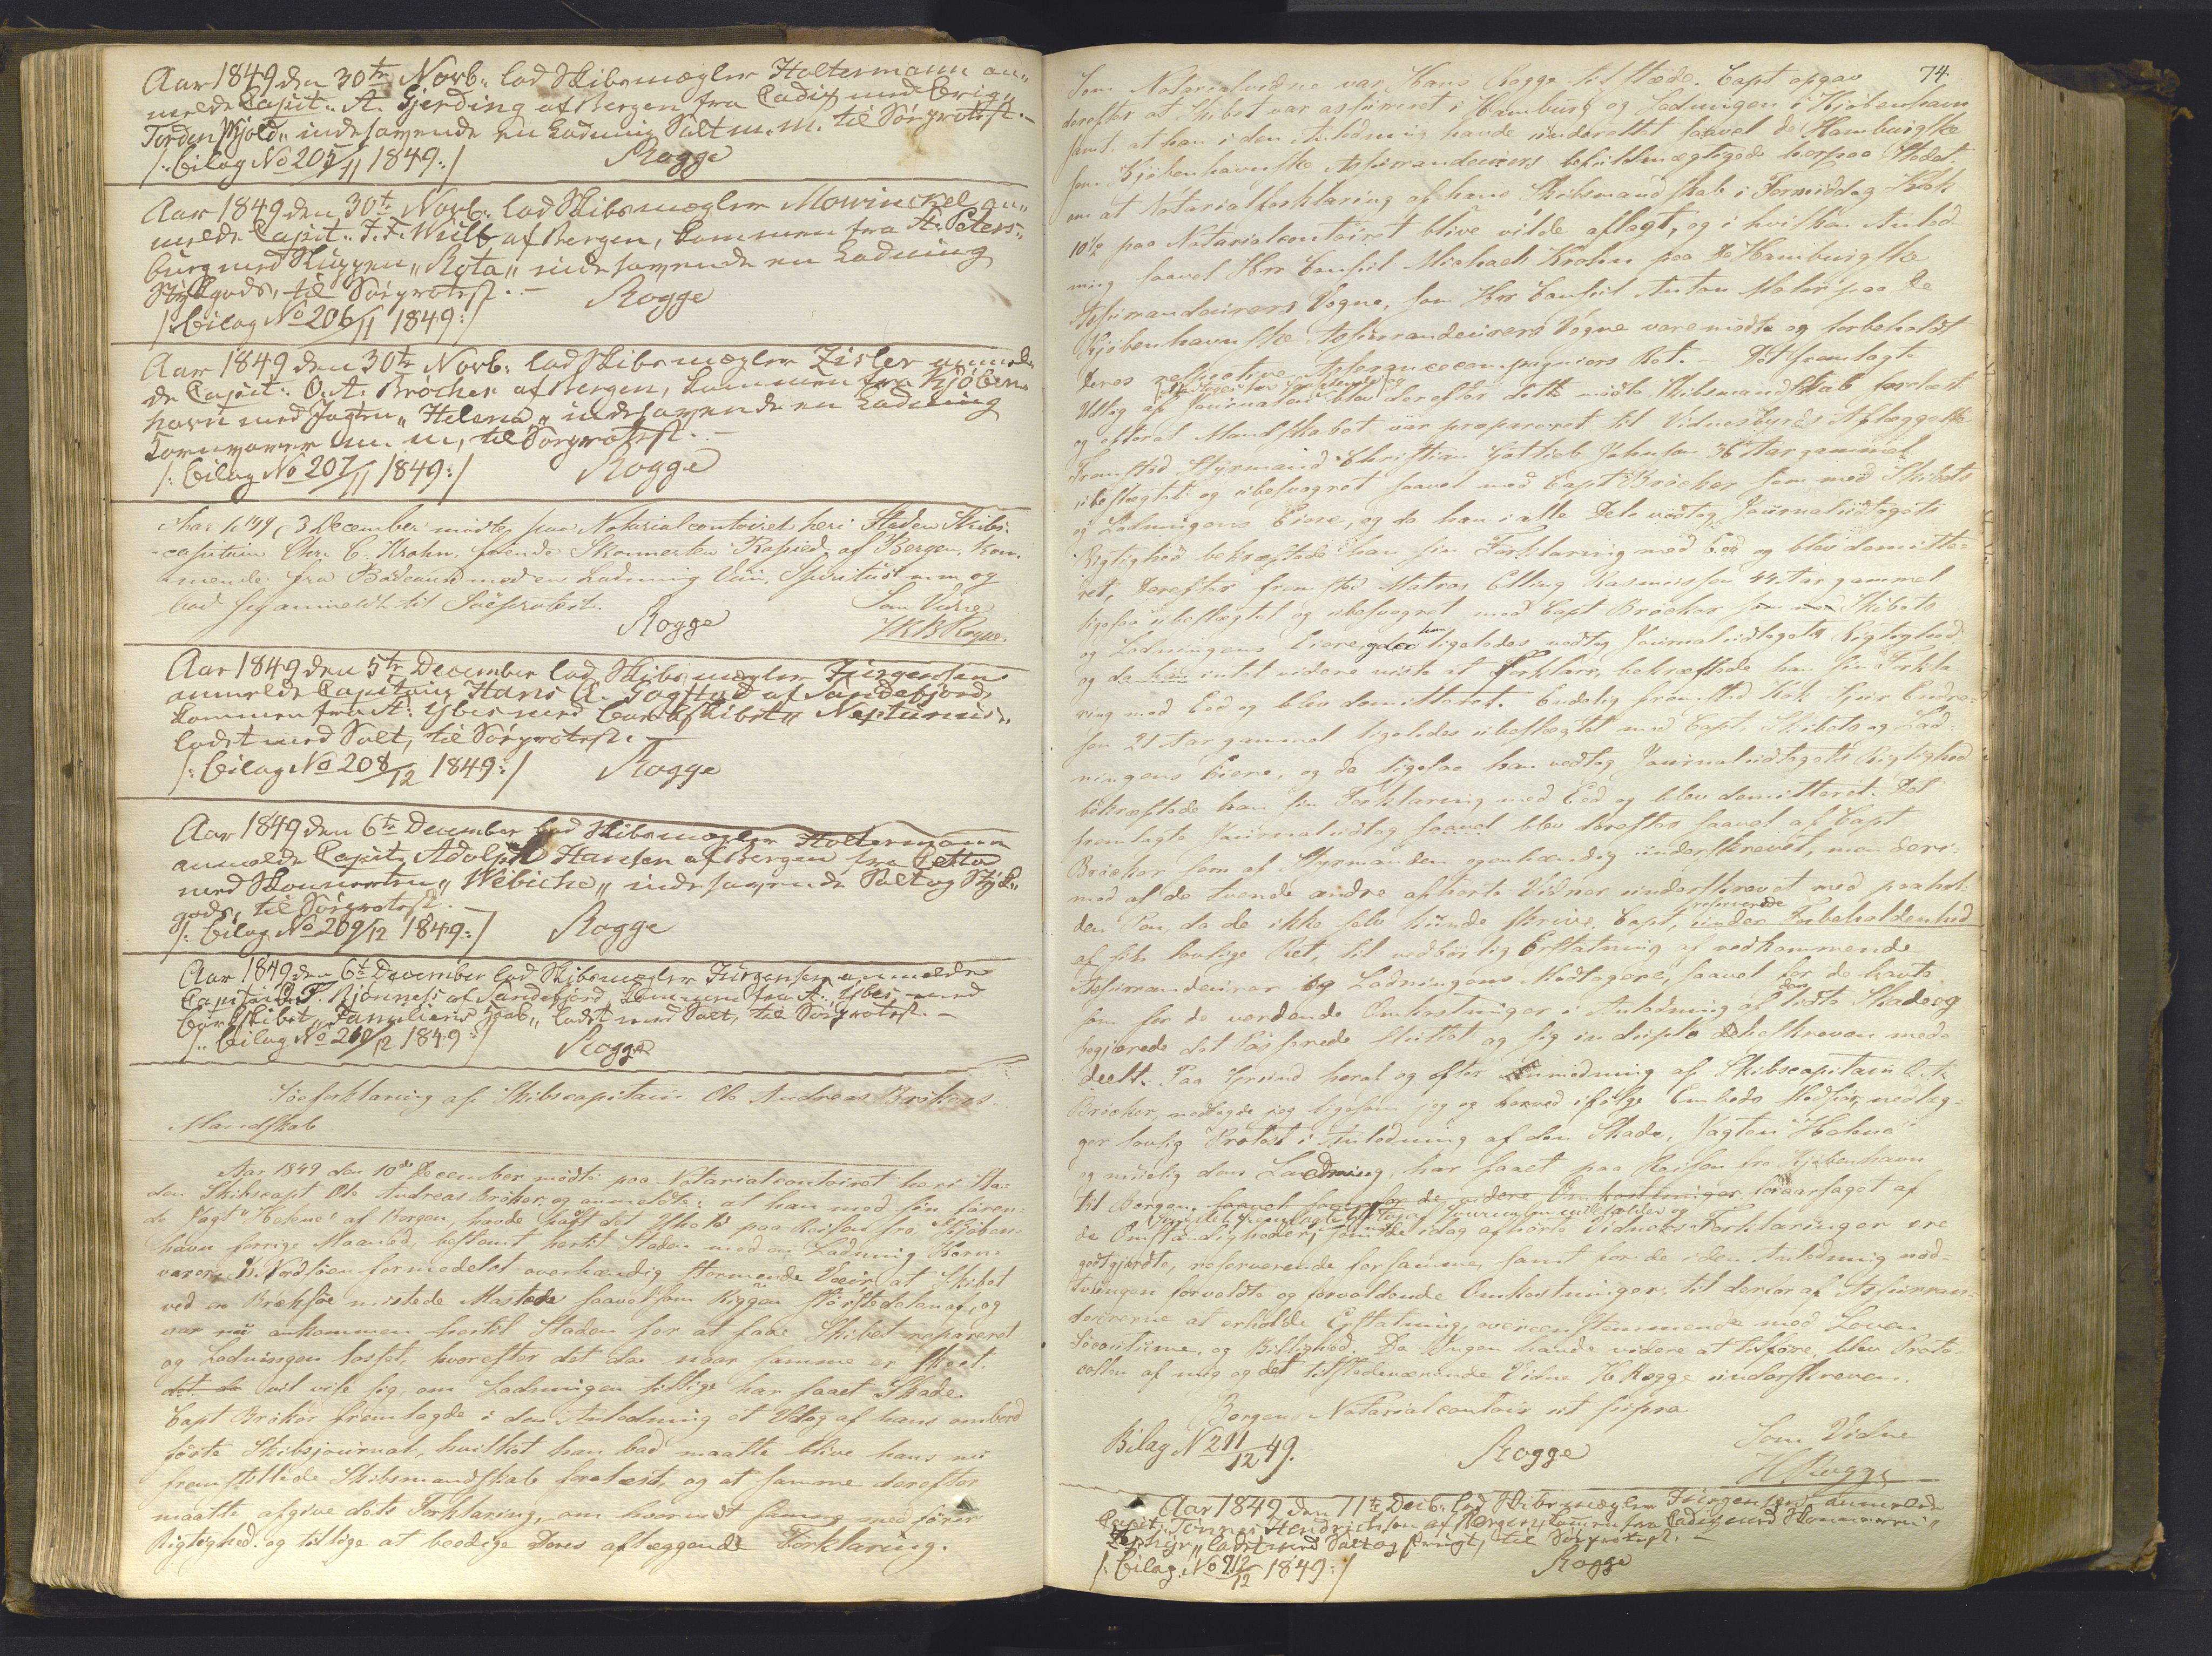 Aar 1849 den 30te Novb: lod Skibsmægler Holtermann an„
melde Capit: A. Gjerding af Bergen fra Cadix med Brig„
Tordenskjold„ indehavende en Ladning Salt m. m. til Søeprotest.—
/: Bilag No 205/11 1849:/ Rogge
Aar 1849 den 30te Novb: lod Skibsmægler Mowinckel an„
melde Capit: F. F. Wulff af Bergen, kommen fra St. Peters„
burg med Sluppen „Rota„ indehavende en Ladning
Stykgods, til Søeprotest.—
/: Bilag No 206/11 1849:/ Rogge
Aar 1849 den 30te Novb: lod Skibsmægler Zisler anmel„
de Capit: O. A. Bröcher af Bergen, kommen fra Kjöben„
havn med Jagten „Helena„ indehavende en Ladning
Kornvarer m. m, til Søeprotest.—
/: Bilag No 207/11 1849:/ Rogge
Aar 1849, 3 December mødte paa Notarialcontoiret her i Staden Skibs-
capitain Chr. C. Krohn, førende Skonnerten Rapied, af Bergen, kom-
mende fra Bordeaux med en Ladning Viin, Spirituosa m.m. og
lod sig anmeldt til Søeprotest.
Som Vidne
Rogge HRB Rogge.
Aar 1849 den 5te December lod Skibsmægler Jürgensen
anmelde Capitain Hans C. Gogstad af Sandefjord,
kommen fra St: Ybes med Barkskibet „Neptunus„
ladt med Salt, til Søeprotest.—
/: Bilag No 208/12 1849:/ Rogge
Aar 1849 den 6te December lod Skibsmægler Holtermann
anmelde Capit: Adolph Hansen af Bergen fra Cette
med Skonnerten „Wibicke„ indehavende Salt og Styk„
gods, til Søeprotest.—
/: Bilag No 209/12 1849:/ Rogge
Aar 1849 den 6te December lod Skibsmægler Jürgensen anmelde
Capitain F. Bjønness af Sandefjord, kommen fra St: Ybes, med
Barkskibet „Familiens Haab„ ladt med Salt, til Søeprotest.—
/: Bilag No 210/12 1849:/ Rogge
Søeforklaring af Skibscapitain Ole Andreas Brökers
Mandskab
Aar 1849 den 10de December mødte paa Notarialcontoiret her i Sta-
den Skibscapt Ole Andreas Bröker og anmeldte: at han med sin føren-
de Jagt „Helene“ af Bergen, havde havt det Uheld paa Reisen fra Kjøben-
havn forrige Maaned, bestemt hertil Staden med en Ladning Korn-
varer, i Nordsøen formedelst overhændig stormende Veir, at Skibet
ved en Bræksøe mistede Masten saavelsom Riggen størstedelen af, og
var nu ankommen hertil Staden for at faae Skibet repareret
og Ladningen losset, hvorefter det da naar samme er skeet,
det da vil vise sig, om Ladningen tillige har faaet Skade.
Capt Bröker fremlagde i den Anledning et Udtog af hans ombord
førte Skibsjournal, hvilket han bad maatte blive hans nu
fremstillede Skibsmandskab forelæst, og at samme derefter
maatte afgive dets Forklaring, om hvorvidt samme medfører
Rigtighed og tillige at beedige deres aflæggende Forklaring.
74.
Som Notarialvidne var Hans Rogge tilstæde. Capt opgav
derefter at Skibet var assureret i Hamburg og Ladningen i Kjøbenhavn
samt at han i den Anledning havde underrettet saavel de Hamburgske
som Kjøbenhavnske Assurandeurers befuldmægtigede herpaa Stedet
om at Notarialforklaring af hans Skibsmandskab i Formiddag Klok
10½ paa Notarialcontoiret blive vilde aflagt, og i hvilken Anled-
ning saavel Hrr Consul Michael Krohn paa De Hamburgske
Assurandeurers Vegne, som Hrr Consul Anton Mohr paa De
Kjøbenhavnske Assurandeurers Vegne vare mødte og forbeholdt
Deres respective Assurancecompagniers Ret.— Det fremlagte
Udtog af Journalen blev derefter dette mødte Skibsmandskab forelæst
og efterat Mandskabet var præpareret til Vidnesbyrds Aflæggelse
Fremstod Styrmand Christian Gottlieb Johnsen 36 Aar gammel
ubeslægtet og ubesvogret saavel med Capt Bröcker som med Skibets
og Ladningens Eiere, og da han i alle Dele vedtog Journaludtogets
Rigtighed bekræftede han sin Forklaring med Eed og blev demitte-
ret, Derefter fremstod Matros Elling Rasmussen 44 Aar gammel
ligesaa ubeslægtet og ubesvogret med Capt Bröcker som med Skibets
og Ladningens Eiere, og da han ligeledes vedtog Journaludtogets Rigtighed
og da han intet videre viste at forklare, bekræftede han sin Forkla-
ring med Eed og blev demitteret. Endelig fremstod Kok Sjur Endre-
sen 21 Aar gammel ligeledes ubeslægtet med Capt, Skibets og Lad-
ningens Eiere, og da ligesaa han vedtog Journaludtogets Rigtighed
bekræftede han sin Forklaring med Eed og blev demitteret. Det
fremlagte Journaludtog saavel blev derefter saavel af Capt
Bröcker som af Styrmanden egenhændig underskrevet, men deri-
mod af de tvende andre afhørte Vidner underskrevet med paahol-
den Pen, da de ikke selv kunde skrive. Capt, reserverede under Forbeholdenhed
af sin lovlige Ret, til vedbørlig Erstatning af vedkommende
Assurandeurer og Ladningens Modtagere, saavel for de havte
som for de vordende Omkostninger i Anledning af den lidte Skade og
begjærede det Passerede sluttet og sig in duplo beskreven med-
deelt. Paa Grund heraf og efter Anmodning af Skibscapitain O. A.
Bröcker, nedlagde jeg ligesom jeg og herved ifølge Embeds Medfør, nedlæg-
ger lovlig Protest i Anledning af den Skade, Jagten „Helene“
og muelig dens Ladning, har faaet paa Reisen fra Kjøbenhavn
til Bergen, foraarsaget af
de Omstændigheder, som de idag afhørte Vidners Forklaringer ere
godtgjordte, reserverende forsamme, samt for de i den Anledning nød-
tvungen forvoldte og forvoldende Omkostninger, til derfor af Assuran-
deurerne at erholde Erstatning, overeensstemmende med Loven
Søecoutume, og Billighed. Da Ingen havde videre at tilføre, blev Proto-
collen af mig og det tilstedeværende Vidne H. Rogge underskreven.
Bergens Notarialcontoir ut supra
Bilag N 211/12 49. Rogge Som Vidne
H Rogge
Aar 1849 den 11te Decb: lod Skibsmægler Jürgensen anmelde
Capit: Tönnes Hendrichsen af Bergen, kommen fra Cadix med Skonnerten„
Zephyr„ ladt med Salt og Frugt, til Søeprotest.—
/: Bilag No 212/12 1849:/ Rogge